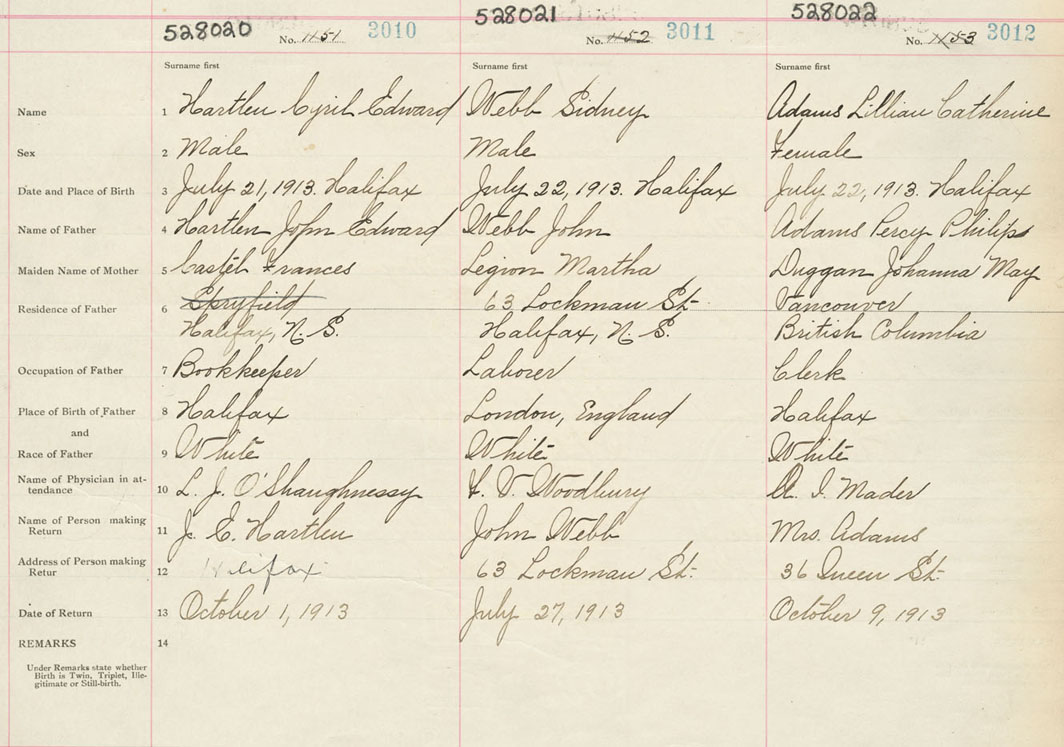 528020 528021 528022
No. 1151 3010 No. 1152 3011 No. 1153 3012
Surname first Surname first Surname first
Name 1 Hartlen Cyril Edward Webb Sidney Adams Lillian Catherine
Sex 2 Male Male Female
Date and Place of Birth 3 July 21, 1913. Halifax July 22, 1913. Halifax July 22, 1913. Halifax
Name of Father 4 Hartlen John Edward Webb John Adams Percy Philip
Maiden Name of Mother 5 Castel Frances Legion Martha Duggan Johanna May
Residence of Father 6 Spryfield 63 Lockman St. Vancouver
Halifax, N. S. Halifax, N. S. British Columbia
Occupation of Father 7 Bookkeeper Laborer Clerk
Place of Birth of Father 8 Halifax London, England Halifax
and
Race of Father 9 White White White
Name of Physician in at-
tendance 10 L. J. O'Shaughnessy F. V. Woodbury A. I. Mader
Name of Person making
Return 11 J. E. Hartlen John Webb Mrs. Adams
Address of Person making
Retur 12 Halifax 63 Lockman St. 36 Queen St.
Date of Return 13 October 1, 1913 July 27, 1913 October 9, 1913
REMARKS 14
Under Remarks state whether
Birth is Twin, Triplet, Ille-
gitimate or Still-birth.